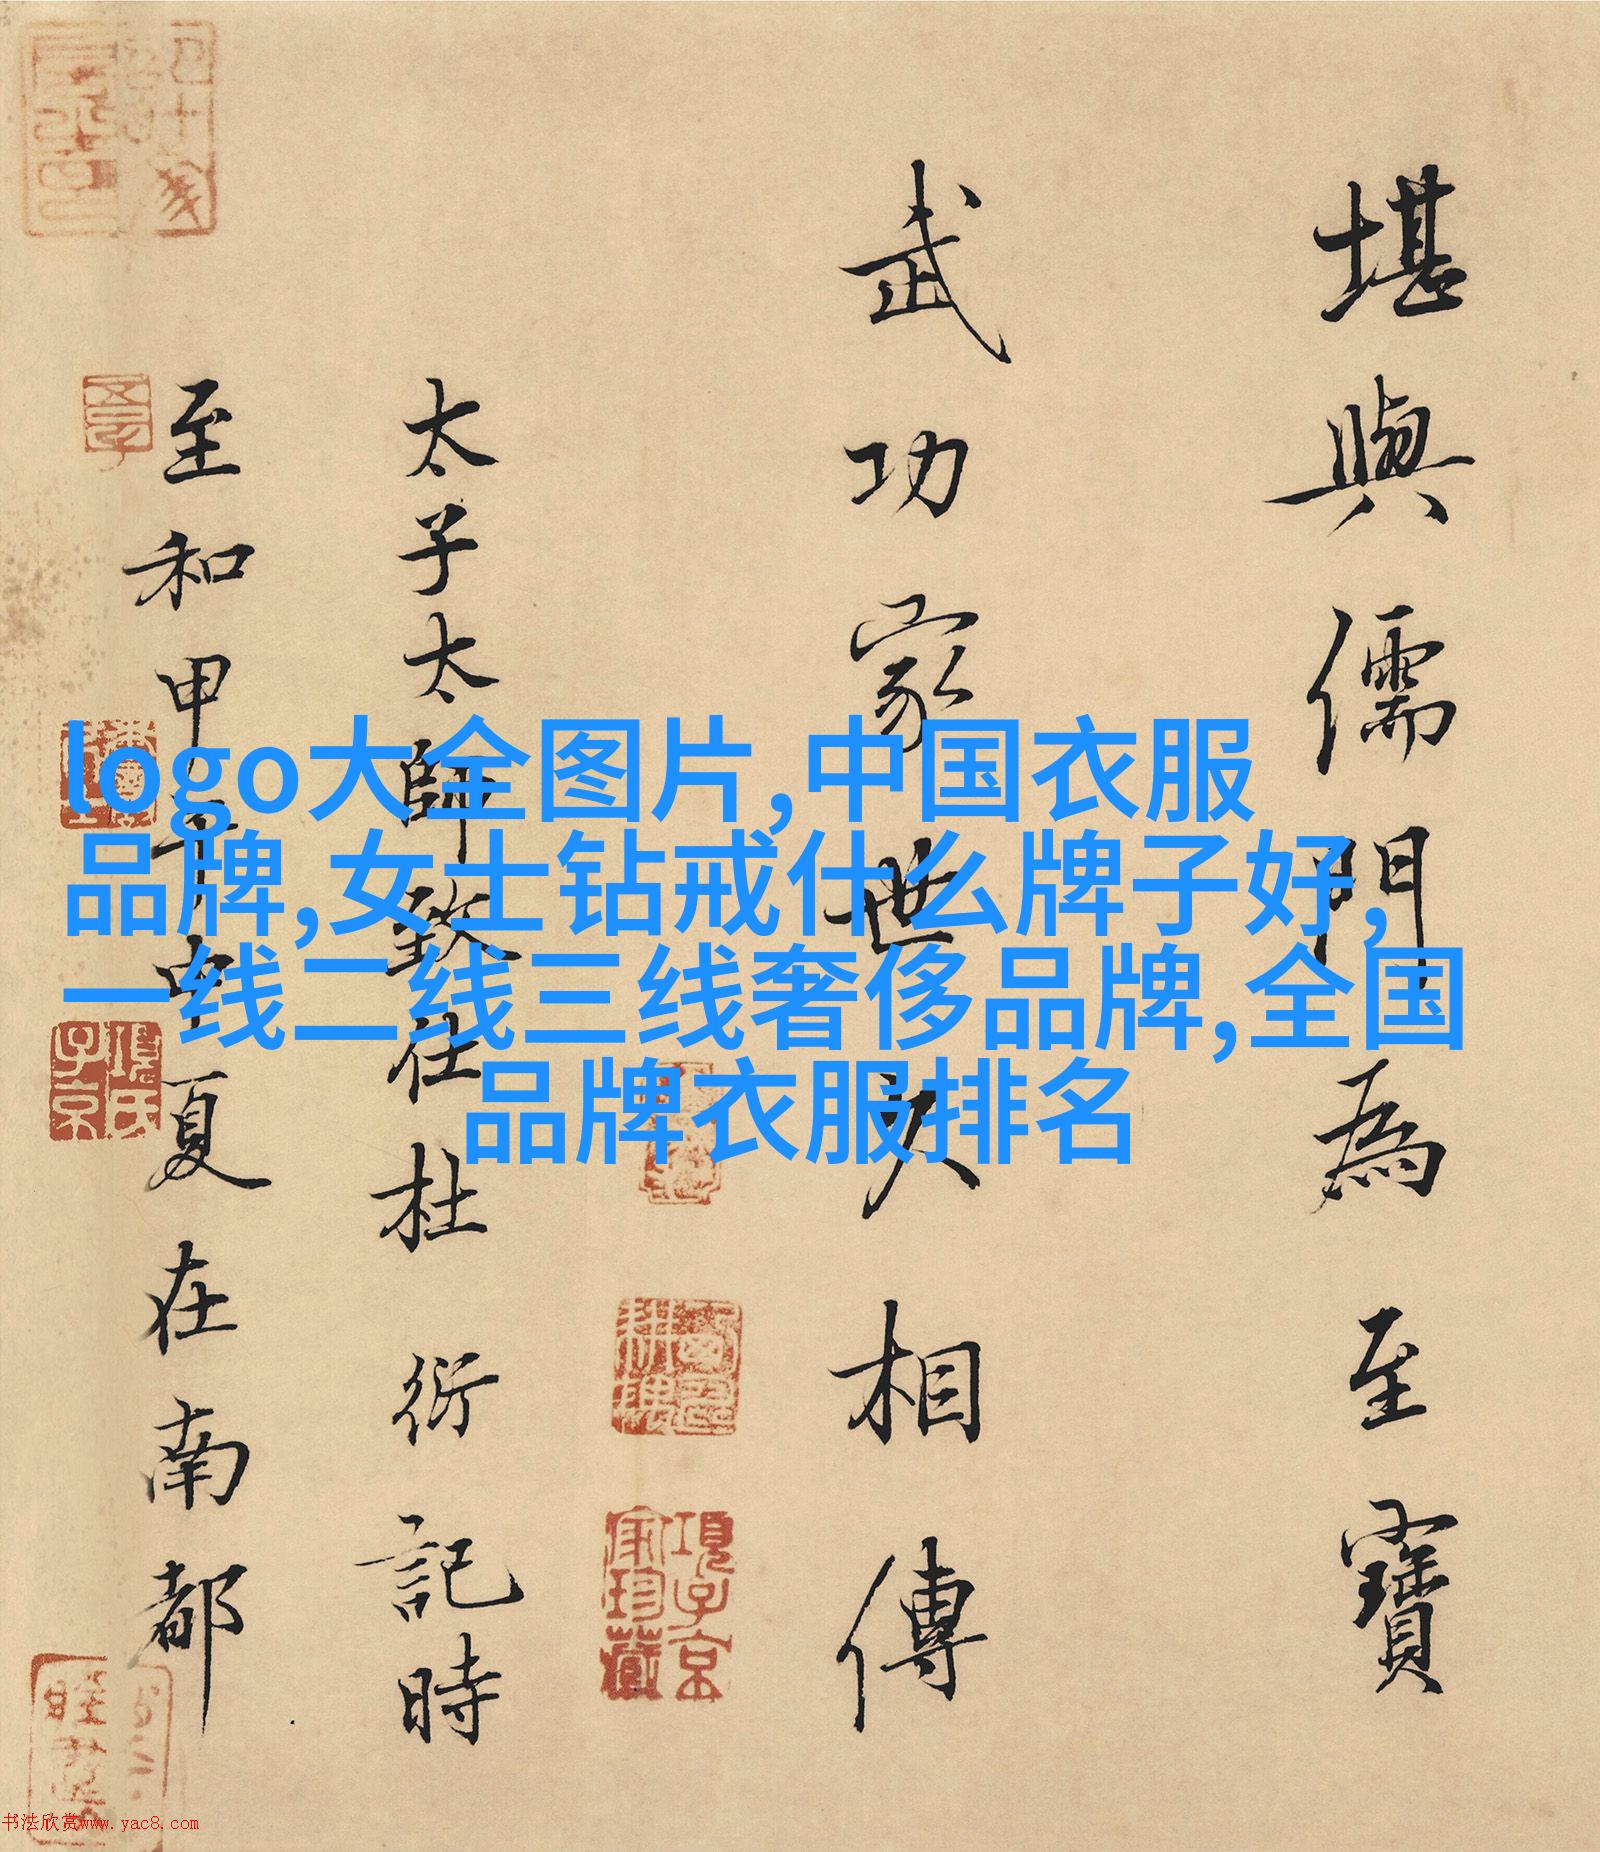 堪與儒門為至寶
武功家世久相傳
太子太師致仕杜衍記時
至和甲午中夏在南都
logo大全图片,中国衣服
品牌,女士钻戒什么牌子好,
一线二线三线奢侈品牌,全国
品牌衣服排名
項子京家珍藏
項氏子京
书法欣赏www.yac8.com